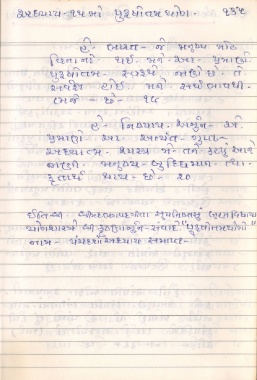 અધ્યાય-૧૫ મો પુરૂષોત્તમ યોગ- ૨૩૯
હે- ભારત- જે મનુષ્ય મોહ
વિનાનો થઈ મને આ પ્રમાણે
પુરૂષોત્તમ સ્વરૂપે જાણે છે તે
સર્વજ્ઞ હોઈ મને સર્વભાવથી
ભજે- છે- ૧૯
હે- નિષ્પાપ અર્જુન- એ
પ્રમાણે આ- અત્યંત ગુહ્ય-
શાસ્ત્ર મે તને કહ્યું આને
જાણી મનુષ્ય બુદ્ધિમાન તથા
કૃતાર્થ થાય- છે- ૨૦
ઈતિ શ્રી શ્રીમદભગવદગીતા સુપનિષત્સુ બ્રહ્મવિદ્યાય
યોગશાસ્ત્રે શ્રી કૃષ્ણાર્જુન-સંવાદે "પુરૂષોત્તમયોગો"
નામ- પંચદશોઅધ્યાય સમાપ્ત-